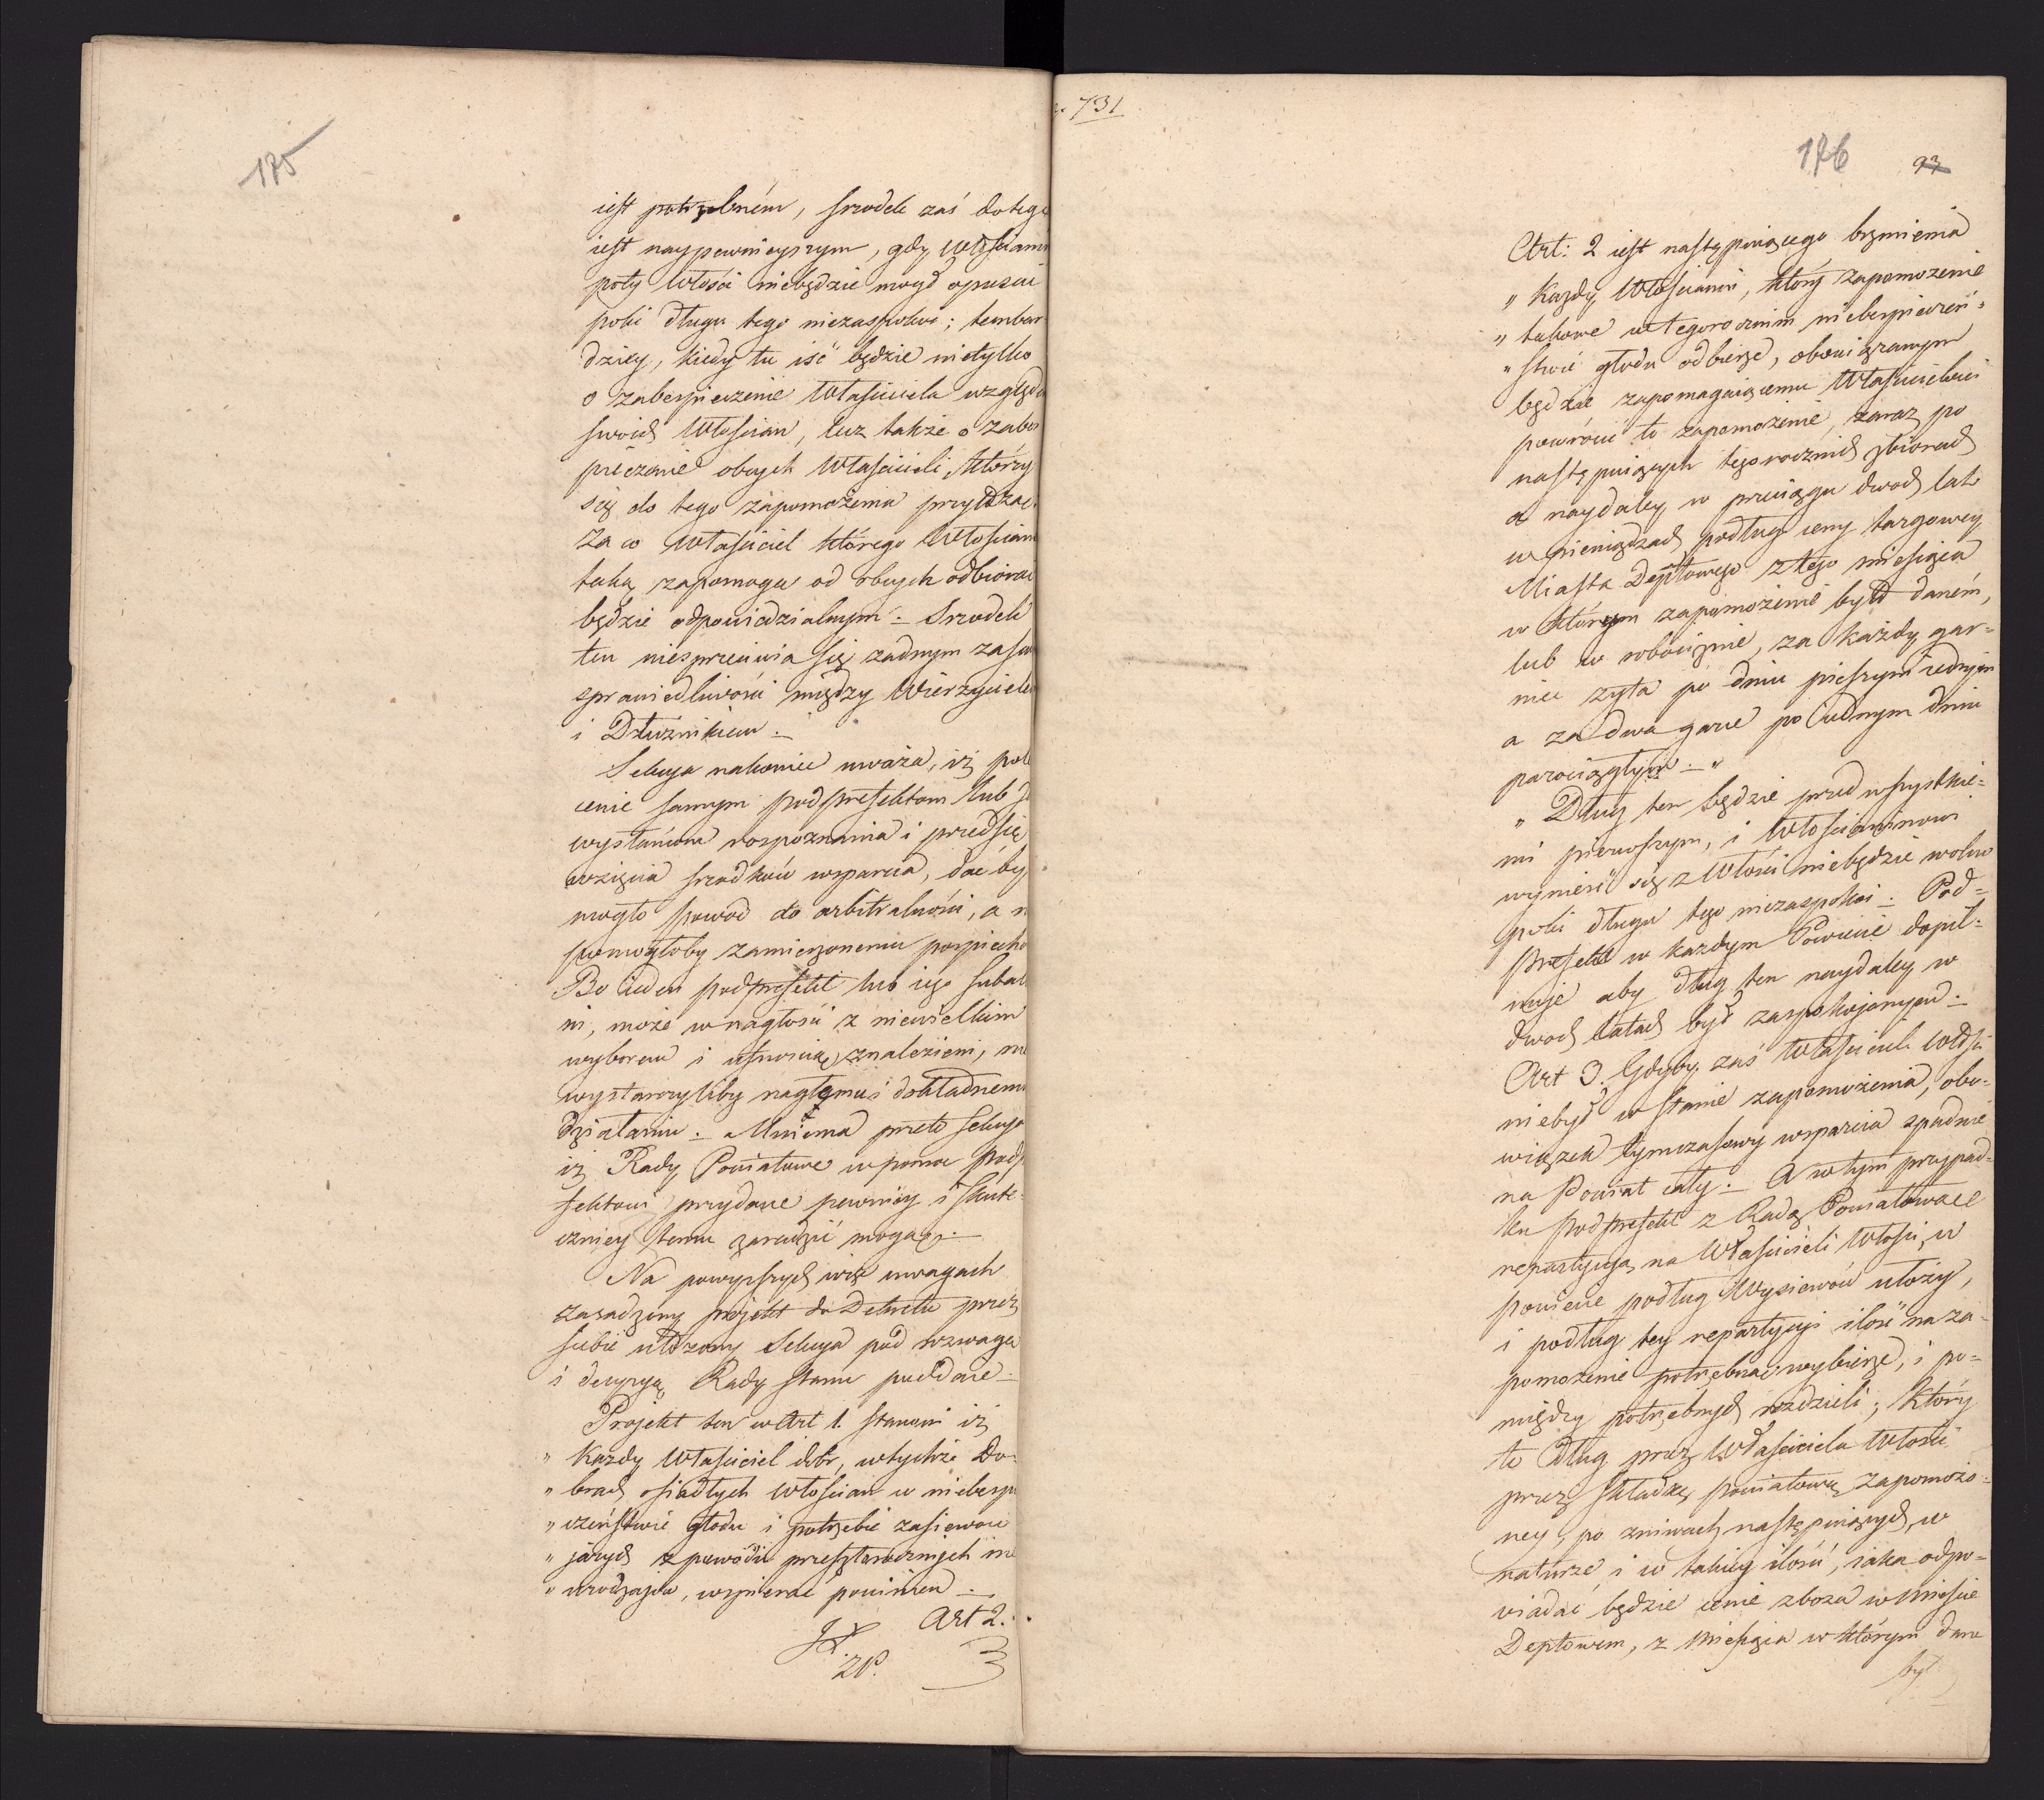 175
iest potrzebném, srzodek zaś dotego
iest naypewnieyszym, gdy Włościanin
poty Włości niebędzie mogł opuścić
poki długu tego niezaspokoi; tembar
dziey, kiedy tu iść będzie nietylko
o zabespieczenie Właściciela względem
swoich Włościan, lecz także o zabes
pieczenie obcych Właścicieli, którzy
się do tego zapomożenia przyłożą
Za co Właściciel którego Włościan
taką zapomogę od obcych odbiorą
będzie odpowiedzialnym. Srzodek
ten niesprzeciwia się żadnym zasa
sprawiedliwości między Wierzycielem
i Dłużnikiem.
Sekcya nakoniec uważa, iż pole
cenie samym podprefektom lub
wysłańcom rozpoznania i przedsię
wzięcia srzodków wsparcia, dać by
mogło powod do arbitralności, a n
pomogłoby zamierzonemu pospiechowi
Bo ieden podprefekt lub iego subal
ni, może w nagłości z niewielkim
wyborem i ufnością znalezieni, nie
wystarczyliby nagłemu i dokładnemu
działaniu. Mniema przeto Sekcya
iż Rady Powiatowe w pomoc podpre
fektowi przydane pewniey i skute
czniey temu zaradzić mogą.
Na powyższych więc uwagach
zasadzony projekt do Dekretu przez
siebie ułożony Sekcya pod rozwagę
i decyzyą Rady Stanu poddaie.
Projekt ten w Art 1. stanowi iż
" Każdy Właściciel dobr, w tychże Do
" brach osiadłych Włościan w niebespie
" czeństwie głodu i potrzebie zasiewow
" jarych z powodu przeszłorocznych nie
" urodzajów, wspierać powinien.
Art 2.
731
176
93
Art: 2 iest następuiącego brzmienia
" Każdy Włościanin, który zapomożenie
" takowe w tegorocznim niebespieczeń=
" stwie głodu odbierze, obowiązanym
będzie zapomagaiącemu Właścicielowi
powrócić to zapomożenie, zaraz po
następuiących tegorocznich zbiorach
a naydaley w przeciągu dwoch lat
w pieniądzach podług ceny targowey
Miasta Depttowego z tego miesiąca
w którym zapomożenie było daném,
lub w robociznie, za każdy gar=
niec żyta po dniu pieszym iednym
a za dwa garce po iednym dniu
parociągłym. "
" Dług ten będzie przed wszystkie=
mi pierwszym, i Włościaninowi
wynieść się z Włości niebędzie wolno
poki długu tego niezaspokoi. Pod=
prefekt w każdym Powiecie dopil=
nuje aby dług ten naydaley w
dwoch latach był zaspokojonym.
Art 3. Gdyby zaś Właściciel Włości
niebył w stanie zapomożenia, obo=
wiązek tymczasowy wsparcia spadnie
na Powiat cały. A w tym przypad=
ku podprefekt z Radą Powiatową
repartycyą na Właścicieli Włości, w
powiecie podług Wysiewów ułoży,
i podług tey repartycyi ilość na za=
pomożenie potrzebną wybierze, i po=
między potrzebnych rozdzieli; który
to Dług przez Właściciela Włości
przez składkę powiatową zapomożo=
ney, po żniwach następuiących, w
naturze i w takiey ilości, iaka odpo=
wiadać będzie cenie zboża w Mieście
Depttowem, z Miesiąca w którym dane
był